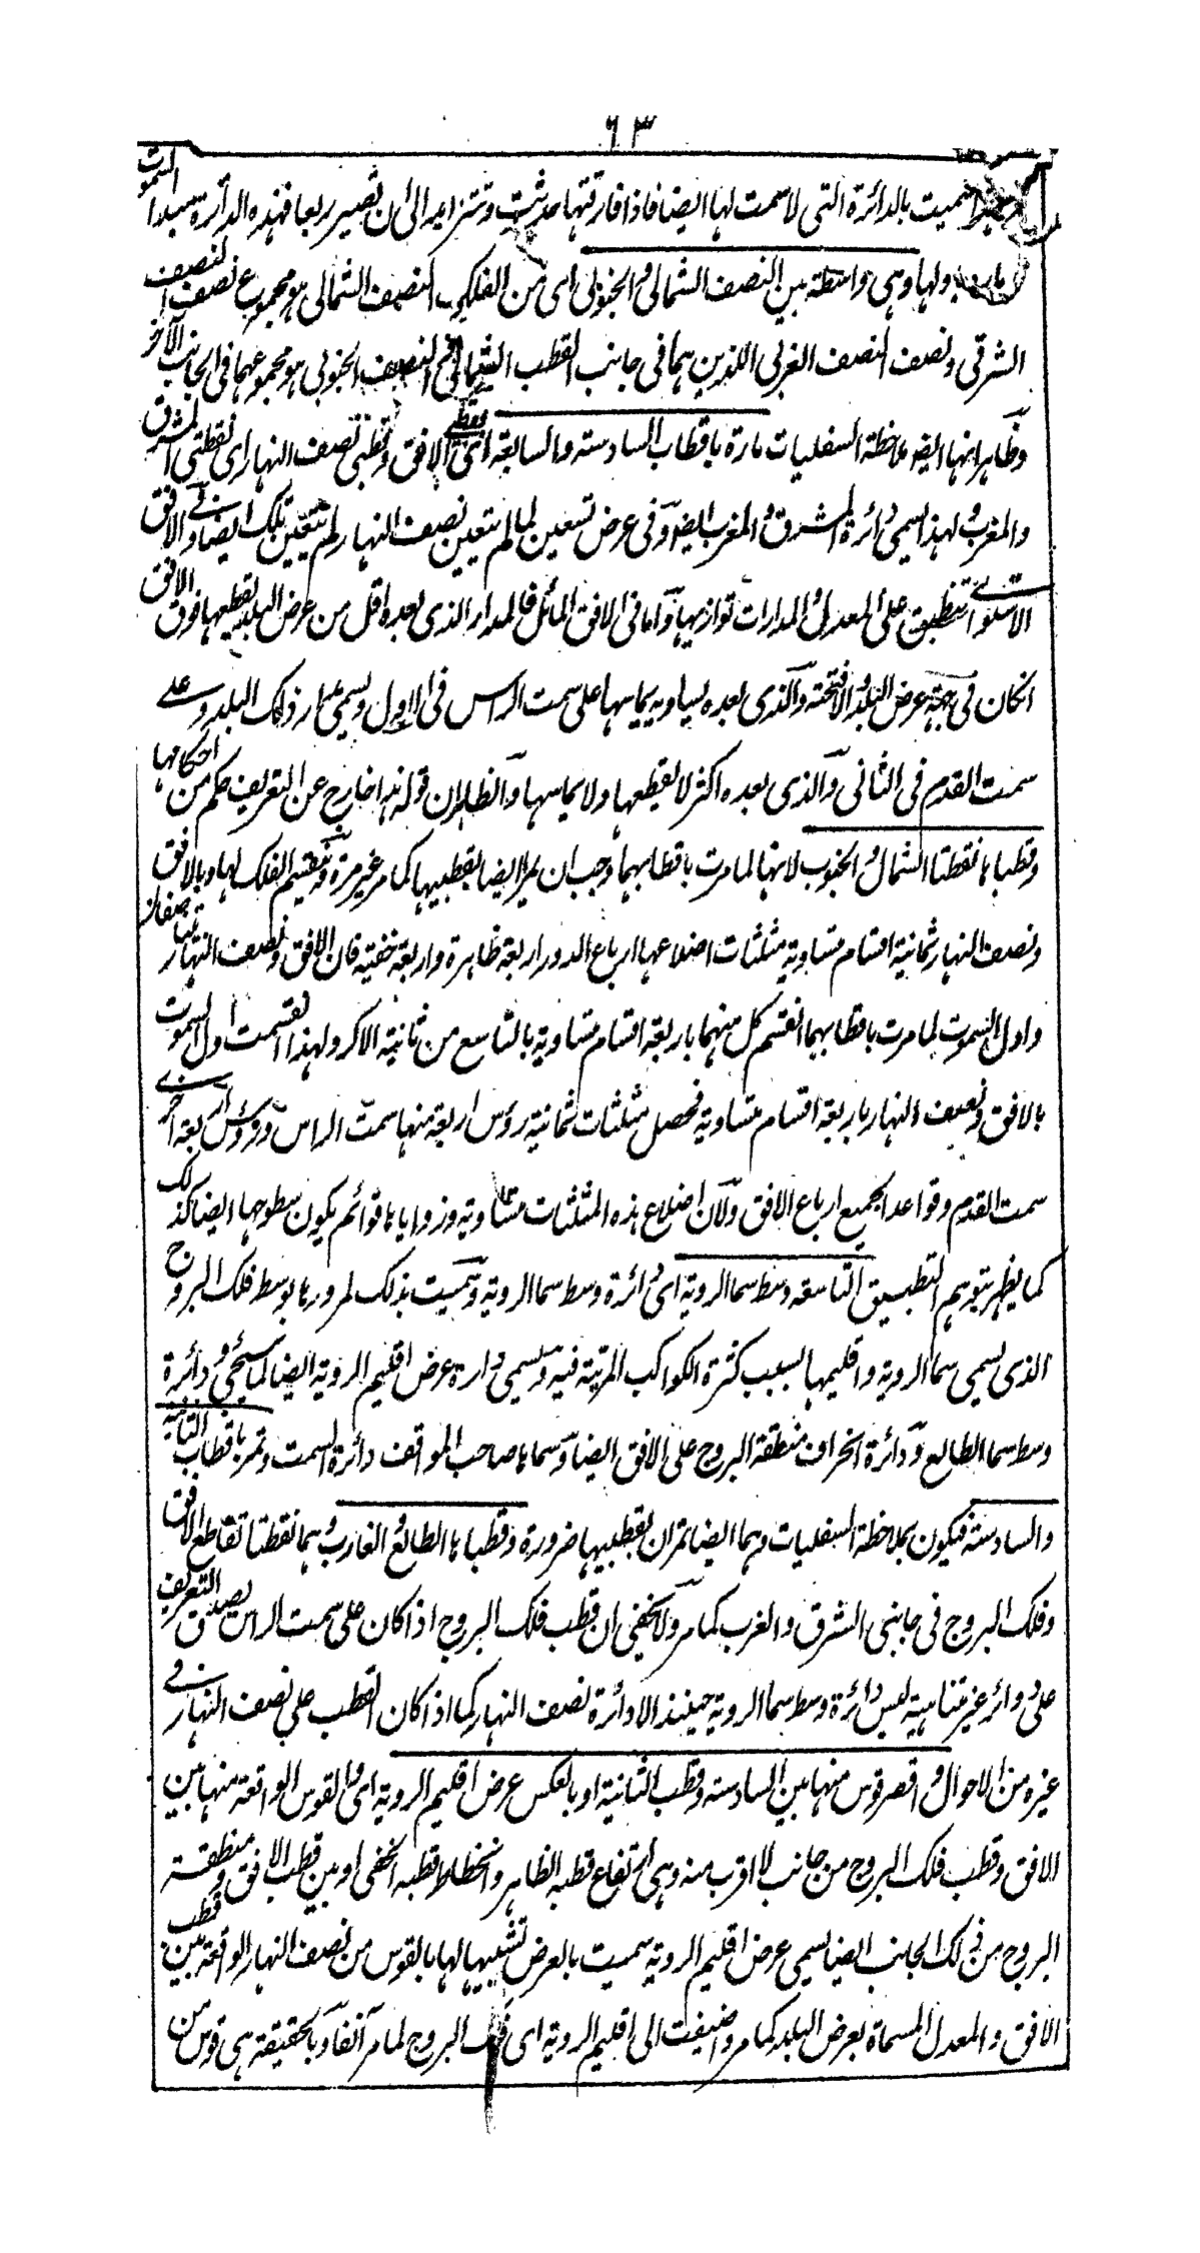 ٦٣
سميت بالدائرة التى لا سمت لها ايضا فاذا فارقتها حدثت وتتزايد الى ان تصير ربعا فهذه الدائرة مبدأ السموت
ولها وهى واسطة بين النصف الشمالى والجنوبى اى من الفلك النصف الشمالى هو مجموع نصف النصف
الشرقى ونصف النصف الغربى اللذين هما فى جانب القطب الشمالى والنصف الجنوبى هو مجموعهما فى الجانب الآخر
وظاهر انها ايضا بملاحظة السفليات مارة باقطاب السادسة والسابعة اى قطبى الافق وقطبى نصف النهار اى نقطتى المشرق
والمغرب ولهذا يسمى دائرة المشرق والمغرب ايضا وفى عرض تسعين لما لم يتعين نصف النهار لم تتعين تلك ايضا وفى الافق
الاستوائى تنطبق على المعدل والمدارات توازيها واما فى الافق المائل فالمدار الذى بعده اقل من عرض البلد يقطعها فوق الافق
انكان فى جهة عرض البلد والا فتحته والذى بعده يساويه يماسها على سمت الراس فى الاول ويسمى مدار ذلك البلد وعلى
سمت القدم فى الثانى والذى بعده اكثر لا يقطعها ولا يماسها والظاهر ان قوله هذا خارج عن التعريف حكم من احكامها
وقطباها نقطتا الشمال والجنوب لانها لما مرت باقطابهما وجب ان يمرا ايضا بقطبيها كما مر غير مرة وينقسم الفلك بها وبالافق
ونصف النهار ثمانية اقسام متساوية مثلثات اضلاعها ارباع الدور اربعة ظاهرة واربعة خفية فان الافق ونصف النهار
واول السموت لما مرت باقطابهما انقسم كل منهما باربعة اقسام متساوية بالتاسع من ثانية الاكر ولهذا انقسمت اول السموت
بالافق ونصف النهار باربعة اقسام متساوية فحصل مثلثات ثمانية رؤس اربعة منها سمت الراس ورؤس اربعة اخرى
سمت القدم وقواعد الجميع ارباع الافق ولان اضلاع هذه المثلثات متساوية وزواياها قوائم يكون سطوحها ايضا كذلك
كما يظهر بتوهم التطبيق التاسعة وسط سماء الروية اى دائرة وسط سماء الروية وسميت بذلك لمرورها بوسط فلك البروج
الذى يسمى سماء الروية واقليمها بسبب كثرة الكواكب المرئية فيه وتسمى دائرة عرض اقليم الروية ايضا لما سيجئ ودائرة
وسط سماء الطالع ودائرة انحراف منطقة البروج على الافق ايضا وسماها صاحب المواقف دائرة السمت وتمر باقطاب الثانية
والسادسة فيكون بملاحظة السفليات وهما ايضا تمران بقطبيها ضرورة وقطباها الطالع والغارب وهما نقطتا تقاطع الافق
وفلك البروج فى جانبى الشرق والغرب كما مر ولا يخفى ان قطب فلك البروج اذا كان على سمت الراس يصدق التعريف
على دوائر غير متناهية ليس دائرة وسط سماء الروية حينئذ الا دائرة نصف النهار كما اذا كان القطب على نصف النهار فى
غيره من الاحوال واقصر قوس منها بين السادسة وقطب الثانية او بالعكس عرض اقليم الروية اى القوس الواقعة منها بين
الافق وقطب فلك البروج من جانب لا اقرب منه وهى ارتفاع قطبه الظاهر وانحطاط قطبه الخفى او بين قطب الافق ومنطقة
البروج من ذلك الجانب ايضا يسمى عرض اقليم الروية سميت بالعرض تشبيها لها بالقوس من نصف النهار الواقعة بين قطب
الافق والمعدل المسماة بعرض البلد كما مر واضيفت الى اقليم الروية اى فلك البروج لما مر آنفا وبالحقيقة هى قوس من